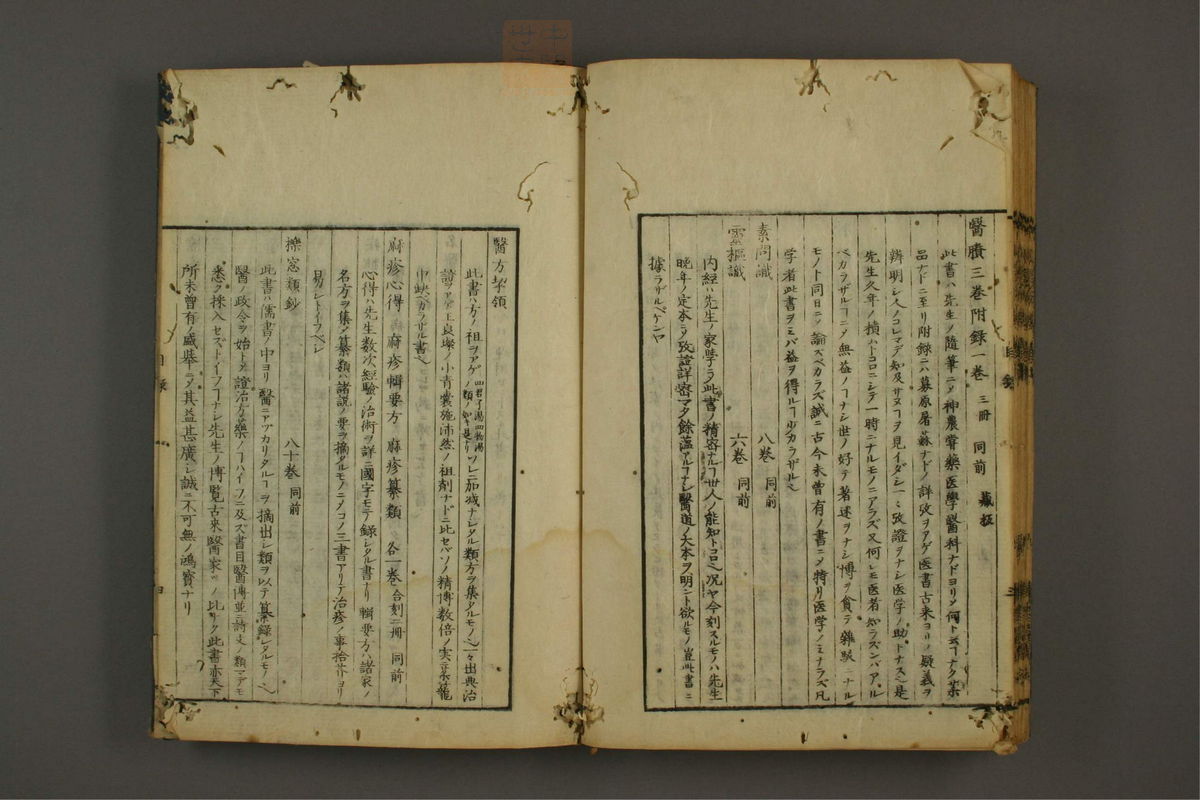 醫賸三巻附録一巻 三冊 同前 蔵板
此書ハ先生ノ隨筆ニ〆神農嘗藥医學醫科ナドヨリ〆何ト云ヿナク薬
品ナドニ至リ附録ニハ募原屠蘇ナドノ詳攷ヲアゲ医書古来ヨリノ疑義ヲ
辨明シ人ノコレマデ知及サヌヿヲ見イダシ一々攷證ヲナシ医学ノ助トナス是
先生久年ノ積ハトコロニシテ一時ニナルモノニアラズ又何レモ医者知ラズンバアル
ベカラザルヿニ〆無益ノヿナシ世ノ好テ著述ヲナシ博ヲ貪テ雜駁ナル
モノト同日ニ〆論ズベカラズ誠ニ古今未曾有ノ書ニ〆特リ医学ノミナラズ凡
学者此書ヲミバ益ヲ得ルヿ少カラザルベシ
素問識 八巻 同前
靈樞識 六巻 同前
内經ハ先生ノ家學ラ此書ノ精密ナルヿ世人ノ能知トコロ况ヤ今刻スルモノハ先生
晩年ノ定本ラ攷證詳密マタ餘蘊アルヿナシ醫道ノ大本ヲ明ント欲ルモノ豈此書ニ
據ラザルベケンヤ
醫方挈領
此書ハ方ノ祖ヲアゲ 四君子湯四物湯ノ類ノ如キ是ナリ ソレニ加减ナシタル類方ヲ集タルモノ一々出典治
證ヲアグ上良璨ノ小青嚢施沛然ノ祖剤ナドニ比セバソノ精博数倍ノ実ニ薬籠
中缺ベカラザル書
麻疹心得 麻疹輯要方 麻疹纂類 各一巻合刻二冊 同前
心得ハ先生数次經驗ノ治術ヲ詳ニ國字モテ録シタル書ナリ輯要方ハ諸家ノ
名方ヲ集メ纂類ハ諸説ノ要ヲ摘タルモノニ〆コノ三書アリテ治疹ノ事拾芥ヨリ
易シトイフベシ
櫟窓類鈔 八十巻 同前
此書ハ儒書ノ中ヨリ醫ニアツカリタルヿヲ摘出シ類ヲ以テ纂録シタルモノ
醫ノ政令ヲ始ト〆證治方藥ノヿハイフニ及ズ書目醫傳並ニ詩文ノ類マデモ
悉ク採入セズトイフヿナシ先生ノ博覧古来醫家ノ比リク此書亦天下
所未曾有ノ盛擧ニ〆其益甚廣シ誠ニ不可無ノ鴻寳ナリ
目録